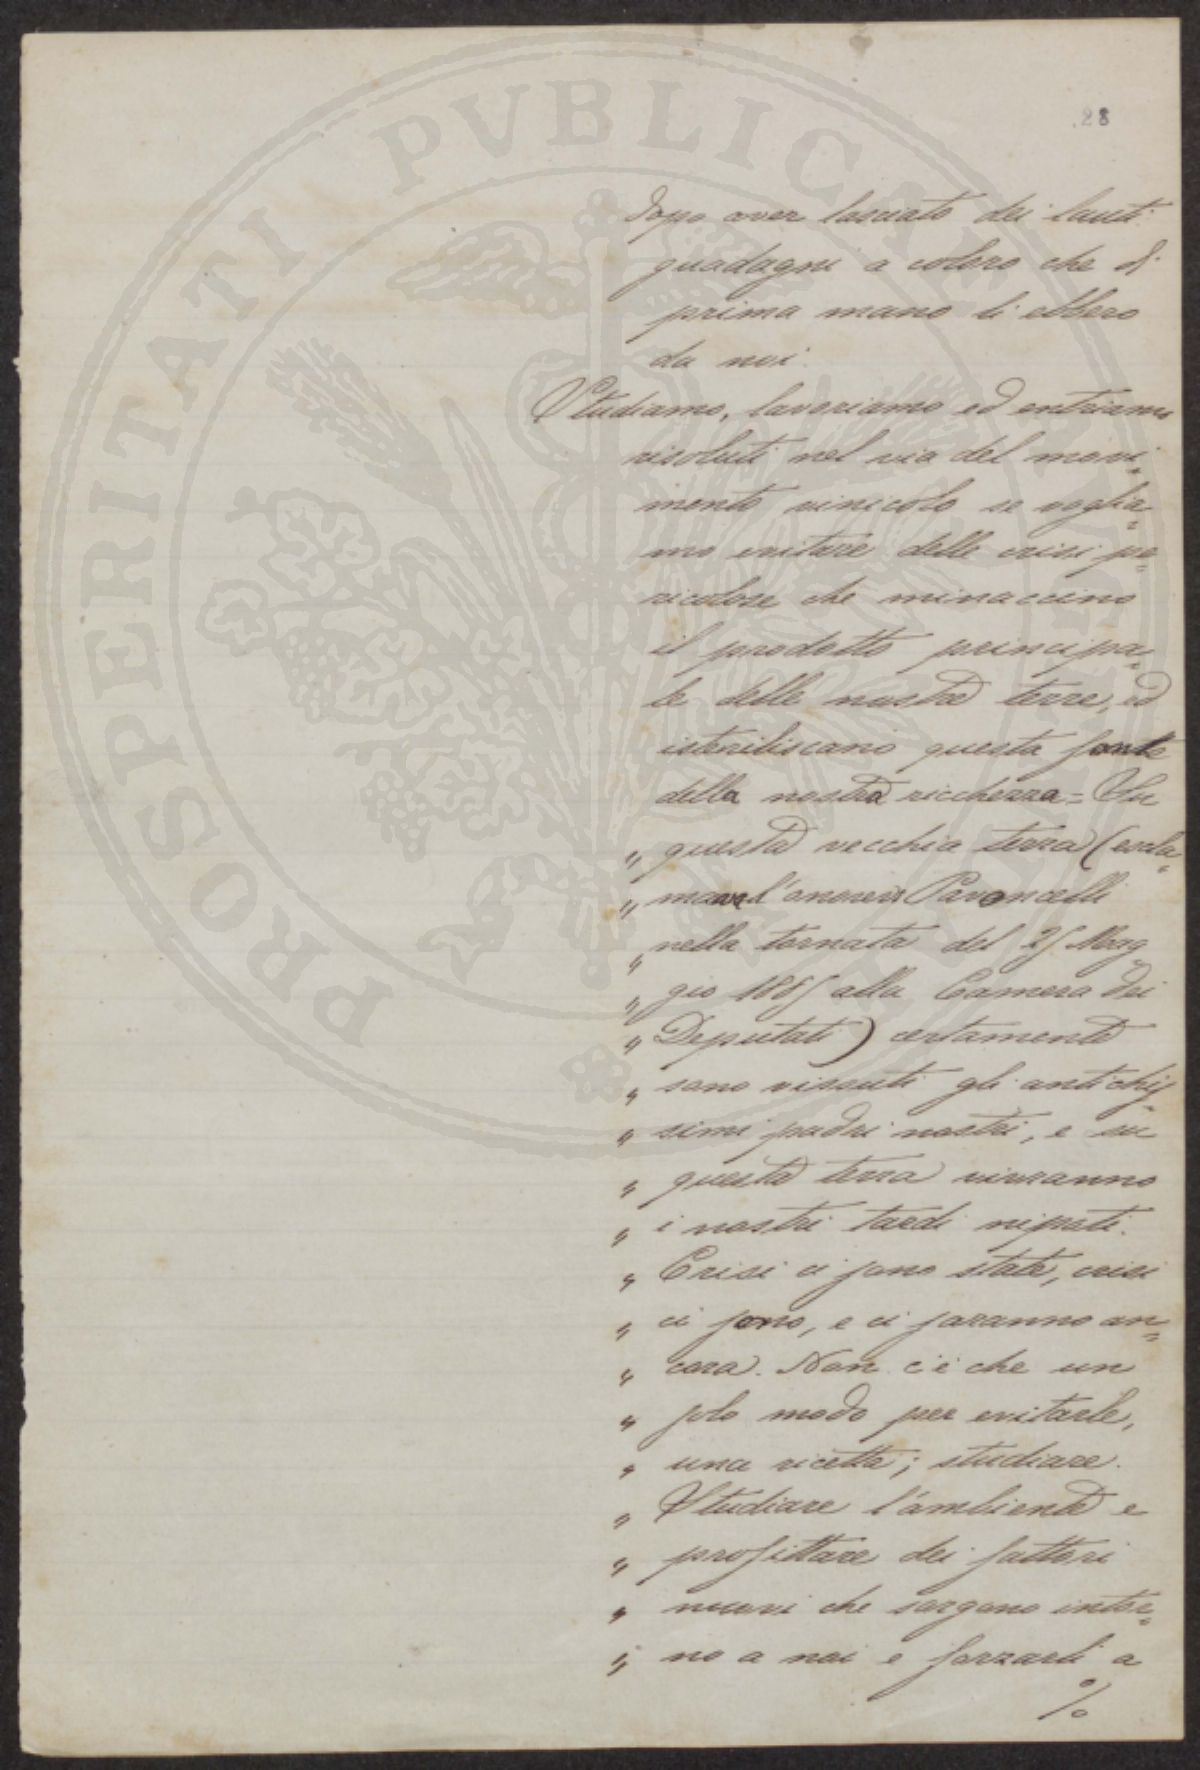 PROSPERITATI PVBLICAE
28
dopo aver lasciato dei lauti
guadagni a coloro che di
prima mano li ebbero
da noi.
Studiamo, lavoriamo ed entriamo
risoluti nel via del movi=
mento vinicolo se voglia=
mo evitare delle crisi pe=
ricolose che minaccino
il prodotto principa=
le delle nostre terre, ed
isteriliscano questa fonte
della nostra ricchezza = Su
„ questa vecchia terra (escla=
„ mava l'onorevole Pavoncelli
„ nella tornata del 25 Mag
„ gio 1885 alla Camera dei
„ Deputati) certamente
„ sono vissuti gli antichis
„ simi padri nostri, e su
„ questa terra vivranno
„ i nostri tardi nipoti.
„ Crisi ci sono state, crisi
„ ci sono, e ci saranno an=
„ cora. Non c'è che un
„ solo modo per evitarle,
„ una ricetta; studiare.
„ Studiare l'ambiente e
„ profittare dei fattori
„ nuovi che sorgono intor=
„ no a noi e forzarli a
%